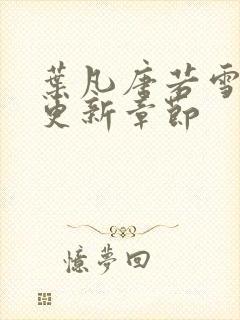 葉凡唐若雪
更新章節
憶夢回